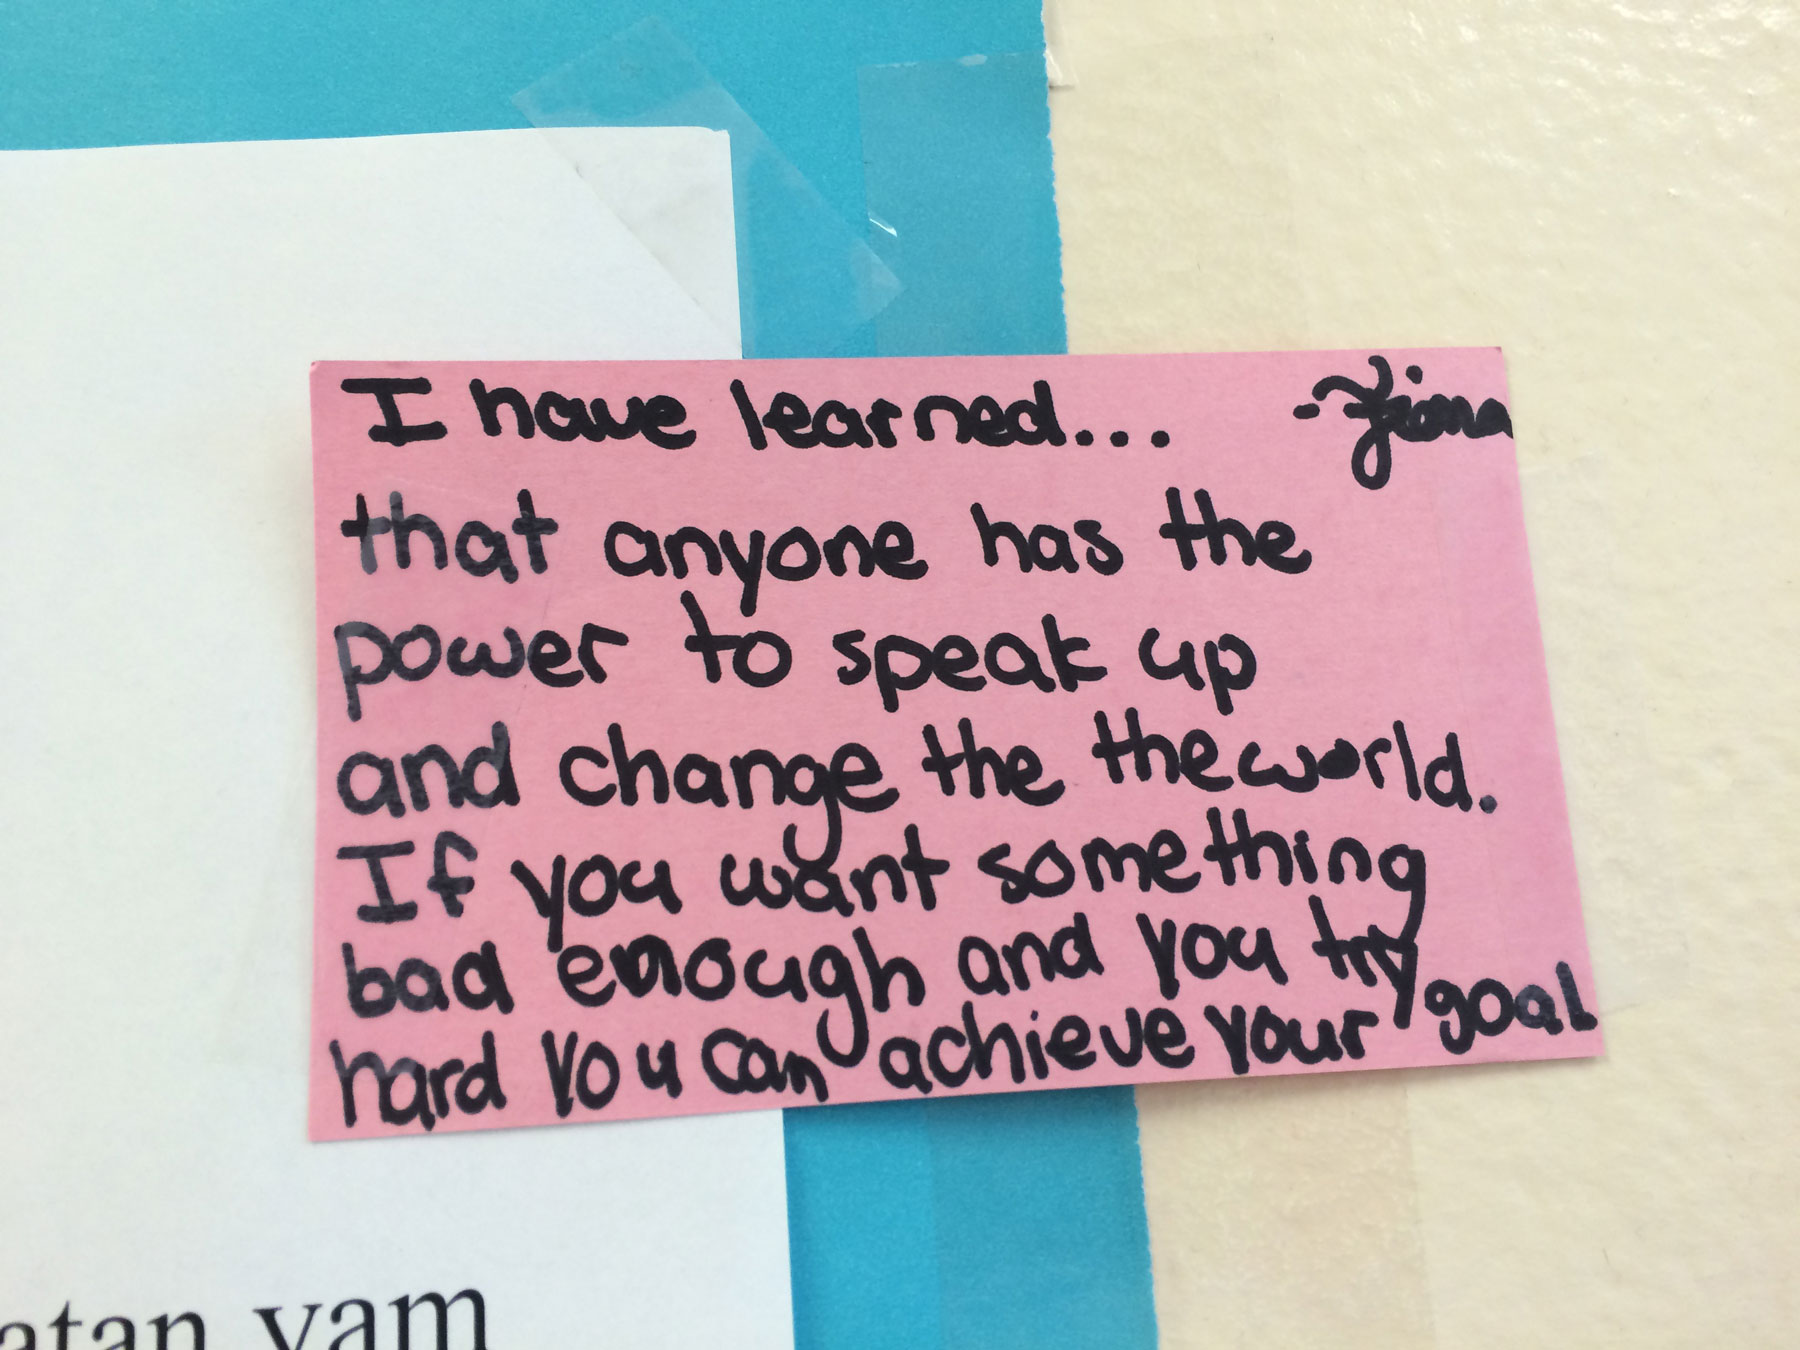 I have learned... -Fiona
that anyone has the
power to speak up
and change the the world.
If you want something
bad enough and you try
hard you can achieve your goal
atan yam